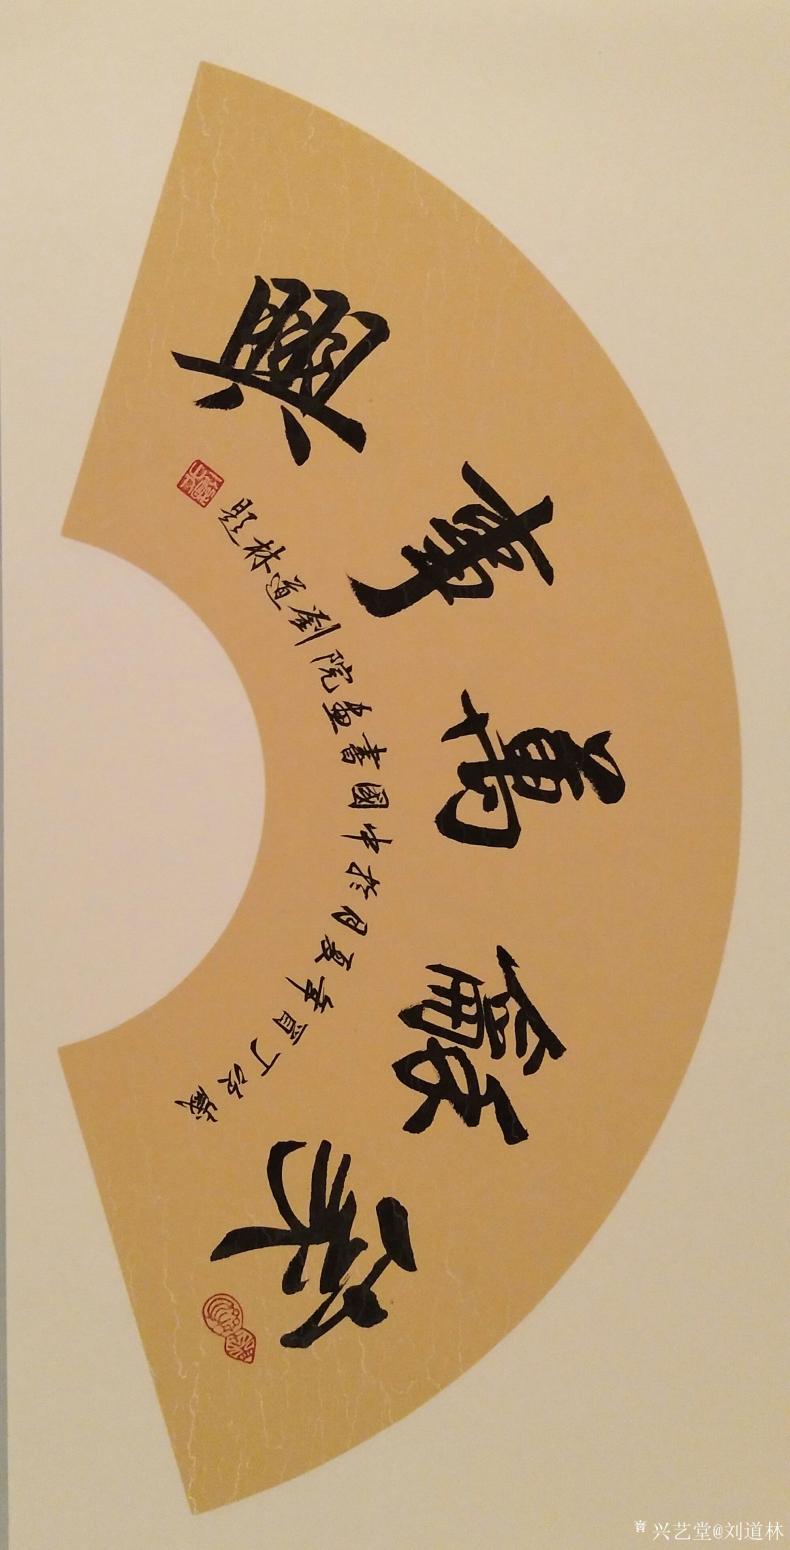 家龢萬事興
歲次丁酉年夏月於中國書畫院劉道林題
兴艺堂@刘道林